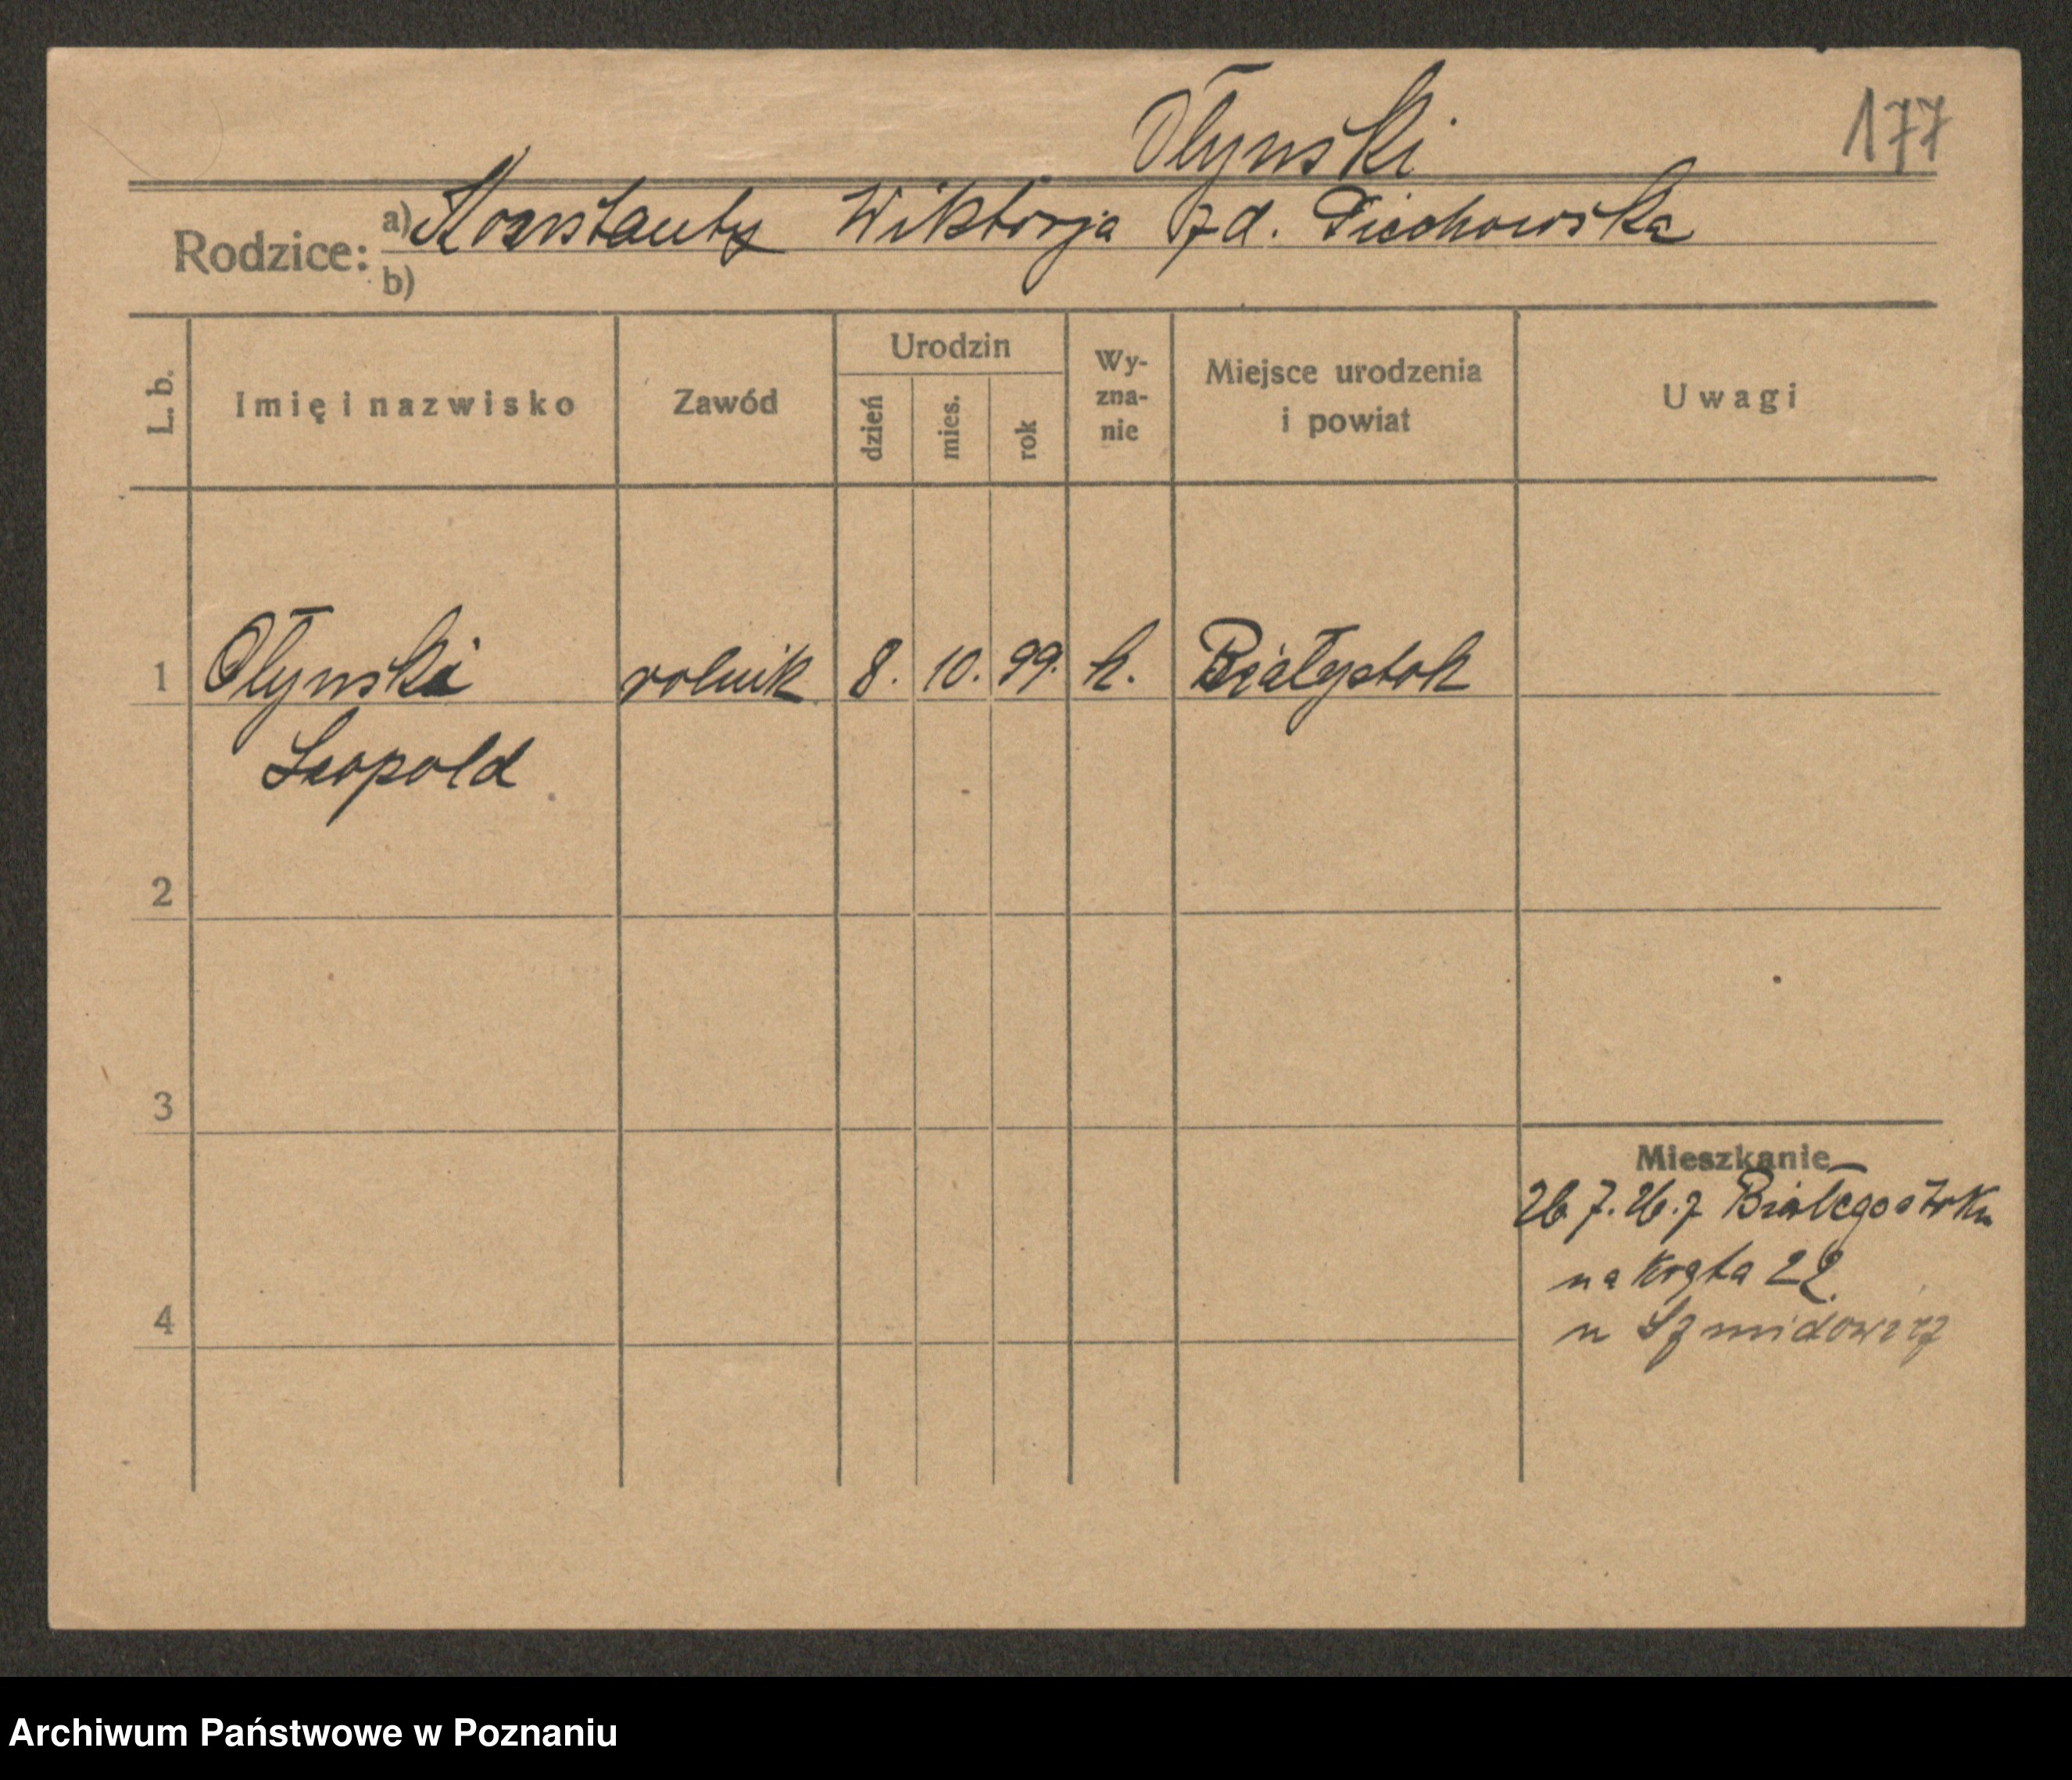 Ołynski
177
Rodzice: a) Konstanty Wiktorja zd. Piechowska
b)
L. b.
Imię i nazwisko
Zawód
Urodzin
dzień
mies.
rok
Wy-
zna-
nie
Miejsce urodzenia
i powiat
Uwagi
1 Ołynski rolnik 8. 10. 99. k. Białystok
Leopold
2
3
Mieszkanie
26.7.26. z Białegostoku
na Kręta 22
u Szmidowicz
4
Archiwum Państwowe w Poznaniu